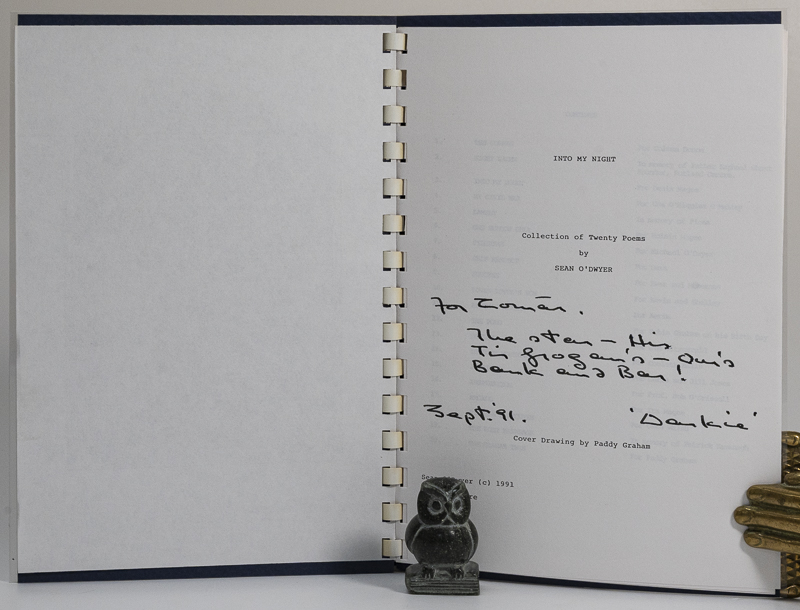 INTO MY NIGHT
Collection of Twenty Poems
by
SEAN O'DWYER
For Tomás.
The star — His
Tir Grogan's — Our's
Bank and Bar!
Sept. '91.
'Dankie'
Cover Drawing by Paddy Graham
(c) 1991